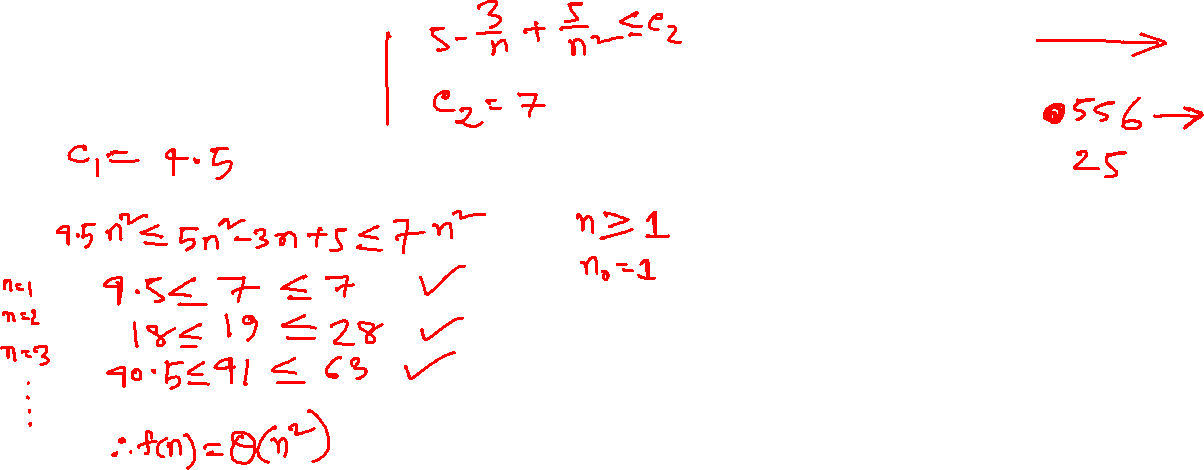 5 - 3/n + 5/n² ≤ c₂
c₂ = 7
→
556 →
25
c₁ = 4.5
4.5n² ≤ 5n² - 3n + 5 ≤ 7n²
n ≥ 1
n₀ = 1
n=1 4.5 ≤ 7 ≤ 7 ✓
n=2 18 ≤ 19 ≤ 28 ✓
n=3 40.5 ≤ 41 ≤ 63 ✓
⋮
∴ f(n) = Θ(n²)